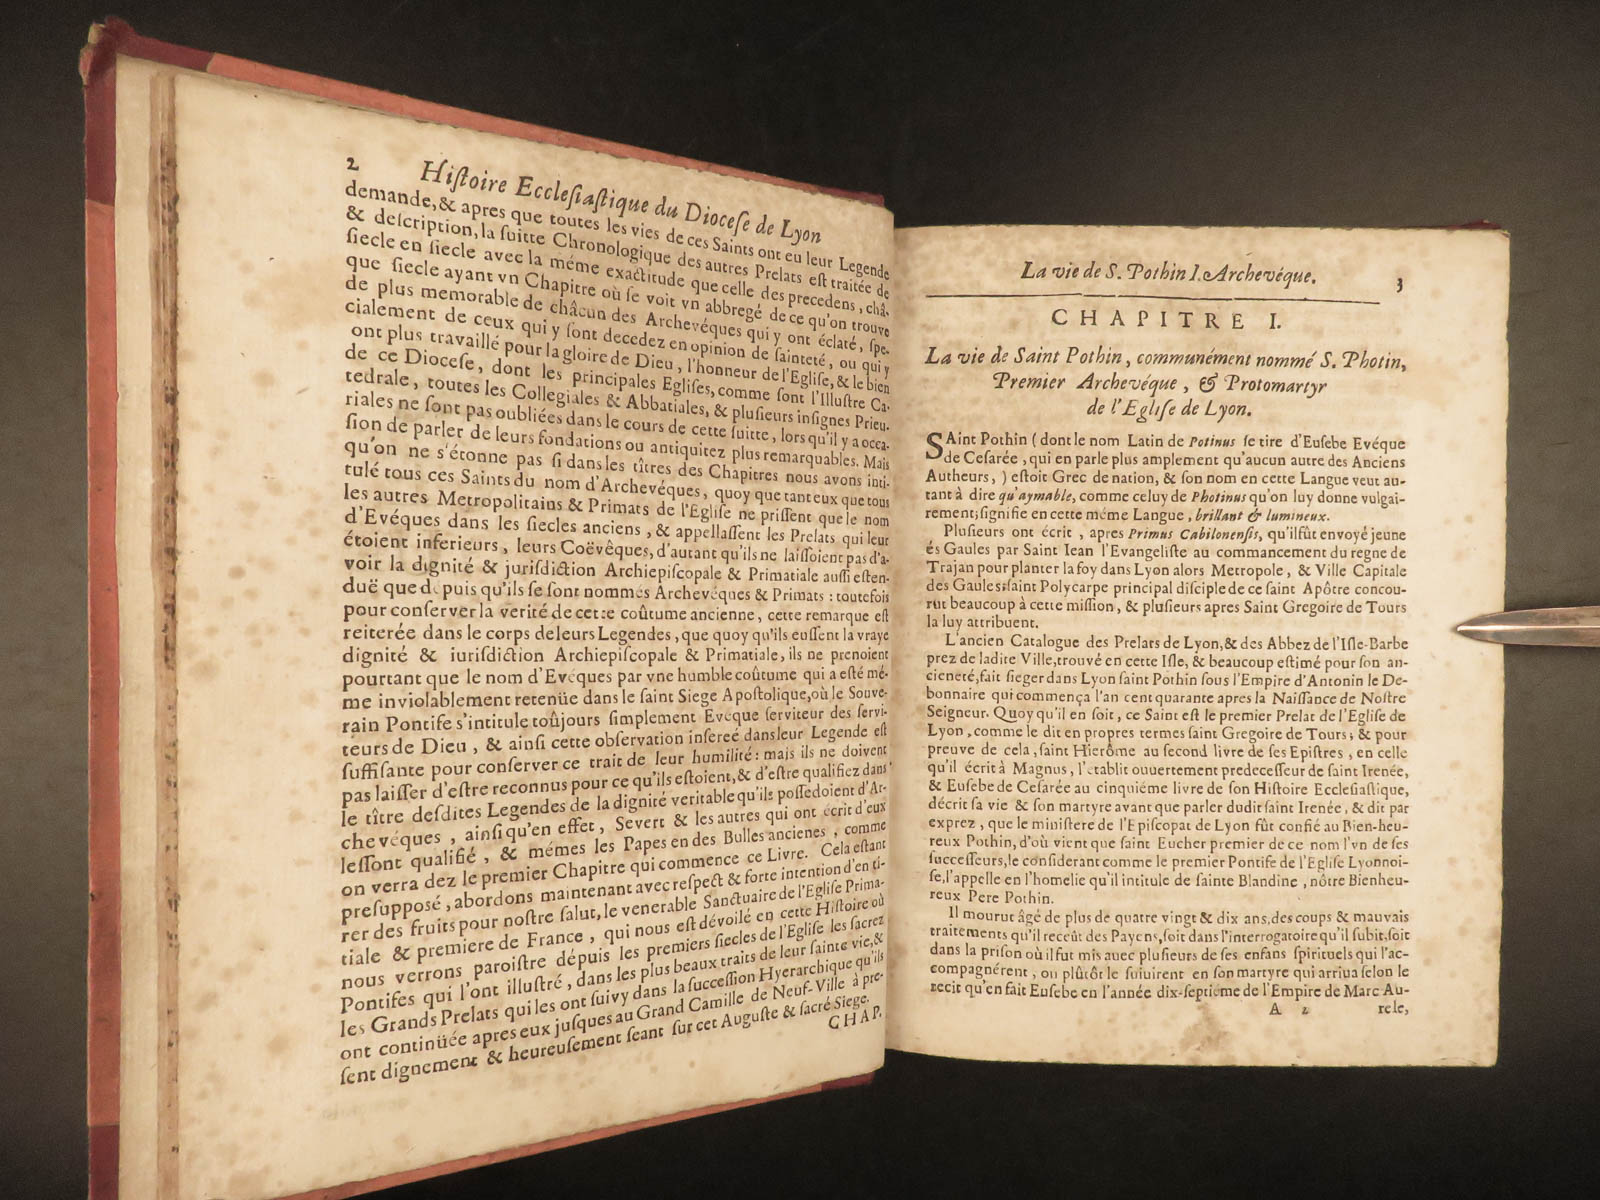 2
Hiſtoire Eccleſiaſtique du Dioceſe de Lyon
demande, & apres que toutes les vies de ces Saints ont eu leur Legende
& deſcription, la ſuitte Chronologique des autres Prelats eſt traitée de
ſiecle en ſiecle avec la méme exactitude que celle des precedens, châ-
que ſiecle ayant vn Chapitre où ſe voit vn abbregé de ce qu'on trouve
de plus memorable de châcun des Archevéques qui y ont éclaté, ſpe-
cialement de ceux qui y ſont decedez en opinion de ſainteté, ou qui y
ont plus travaillé pour la gloire de Dieu, l'honneur de l'Egliſe, & le bien
de ce Dioceſe, dont les principales Egliſes, comme ſont l'Illuſtre Ca-
tedrale, toutes les Collegiales & Abbatiales, & pluſieurs inſignes Prieu-
riales ne ſont pas oubliées dans le cours de cette ſuitte, lors qu'il y a occa-
ſion de parler de leurs fondations ou antiquitez plus remarquables. Mais
qu'on ne s'étonne pas ſi dans les tîtres des Chapitres nous avons inti-
tulé tous ces Saints du nom d'Archevéques, quoy que tant eux que tous
les autres Metropolitains & Primats de l'Egliſe ne priſſent que le nom
d'Evéques dans les ſiecles anciens, & appellaſſent les Prelats qui leur
étoient inferieurs, leurs Coëvêques, d'autant qu'ils ne laiſſoient pas d'a-
voir la dignité & jurisdiction Archiepiſcopale & Primatiale auſſi eſten-
duë que depuis qu'ils ſe ſont nommés Archevéques & Primats: toutefois
pour conſerver la verité de cette coûtume ancienne, cette remarque eſt
reiterée dans le corps de leurs Legendes, que quoy qu'ils euſſent la vraye
dignité & iurisdiction Archiepiſcopale & Primatiale, ils ne prenoient
pourtant que le nom d'Evéques par vne humble coûtume qui a eſté mé-
me inviolablement retenüe dans le ſaint Siege Apoſtolique, où le Souve-
rain Pontife s'intitule toûjours ſimplement Evéque ſerviteur des ſervi-
teurs de Dieu, & ainſi cette obſervation inſereé dans leur Legende eſt
ſuffiſante pour conſerver ce trait de leur humilité: mais ils ne doivent
pas laiſſer d'eſtre reconnus pour ce qu'ils eſtoient, & d'eſtre qualifiez dans
le tître deſdites Legendes de la dignité veritable qu'ils poſſedoient d'Ar-
chevéques, ainſi qu'en effet, Severt & les autres qui ont écrit d'eux
leſſont qualifié, & mémes les Papes en des Bulles ancienes, comme
on verra dez le premier Chapitre qui commence ce Livre. Cela eſtant
preſupposé, abordons maintenant avec reſpect & forte intention d'en ti-
rer des fruits pour noſtre ſalut, le venerable Sanctuaire de l'Egliſe Prima-
tiale & premiere de France, qui nous eſt dévoilé en cette Hiſtoire où
nous verrons paroiſtre dépuis les premiers ſiecles de l'Egliſe les ſacrez
Pontifes qui l'ont illuſtré, dans les plus beaux traits de leur ſainte vie, &
les Grands Prelats qui les ont ſuivy dans la ſucceſſion Hyerarchique qu'ils
ont continüée apres eux juſques au Grand Camille de Neuf-Ville à pre-
ſent dignement & heureuſement ſeant ſur cet Auguſte & ſacré Siege.
CHAP.
La vie de S. Pothin I. Archevéque.
3
CHAPITRE I.
La vie de Saint Pothin, communément nommé S. Photin,
Premier Archevéque, & Protomartyr
de l'Egliſe de Lyon.
SAint Pothin ( dont le nom Latin de Potinus ſe tire d'Euſebe Evéque
de Ceſarée, qui en parle plus amplement qu'aucun autre des Anciens
Autheurs, ) eſtoit Grec de nation, & ſon nom en cette Langue veut au-
tant à dire qu'aymable, comme celuy de Photinus qu'on luy donne vulgai-
rement, ſignifie en cette méme Langue, brillant & lumineux.
Pluſieurs ont écrit, apres Primus Cabilonenſis, qu'il fût envoyé jeune
és Gaules par Saint Iean l'Evangeliſte au commancement du regne de
Trajan pour planter la foy dans Lyon alors Metropole, & Ville Capitale
des Gaules; ſaint Polycarpe principal diſciple de ce ſaint Apôtre concou-
rut beaucoup à cette miſſion, & pluſieurs apres Saint Gregoire de Tours
la luy attribuent.
L'ancien Catalogue des Prelats de Lyon, & des Abbez de l'Iſle-Barbe
prez de ladite Ville, trouvé en cette Iſle, & beaucoup eſtimé pour ſon an-
cieneté, fait ſieger dans Lyon ſaint Pothin ſous l'Empire d'Antonin le De-
bonnaire qui commença l'an cent quarante apres la Naiſſance de Noſtre
Seigneur. Quoy qu'il en ſoit, ce Saint eſt le premier Prelat de l'Egliſe de
Lyon, comme le dit en propres termes ſaint Gregoire de Tours; & pour
preuve de cela, ſaint Hierôme au ſecond livre de ſes Epiſtres, en celle
qu'il écrit à Magnus, l'établit ouuertement predeceſſeur de ſaint Irenée,
& Euſebe de Ceſarée au cinquiéme livre de ſon Hiſtoire Eccleſiaſtique,
décrit ſa vie & ſon martyre avant que parler dudit ſaint Irenée, & dit par
exprez, que le miniſtere de l'Epiſcopat de Lyon fût confié au Bien-heu-
reux Pothin, d'où vient que ſaint Eucher premier de ce nom l'vn de ſes
ſucceſſeurs, le conſiderant comme le premier Pontife de l'Egliſe Lyonnoi-
ſe, l'appelle en l'homelie qu'il intitule de ſainte Blandine, nôtre Bienheu-
reux Pere Pothin.
Il mourut âgé de plus de quatre vingt & dix ans, des coups & mauvais
traitements qu'il receût des Payens, ſoit dans l'interrogatoire qu'il ſubit, ſoit
dans la priſon où il fut mis avec pluſieurs de ſes enfans ſpirituels qui l'ac-
compagnérent, ou plûtôt le ſuiuirent en ſon martyre qui arriua ſelon le
recit qu'en fait Euſebe en l'année dix-ſeptiéme de l'Empire de Marc Au-
A 2
rele,